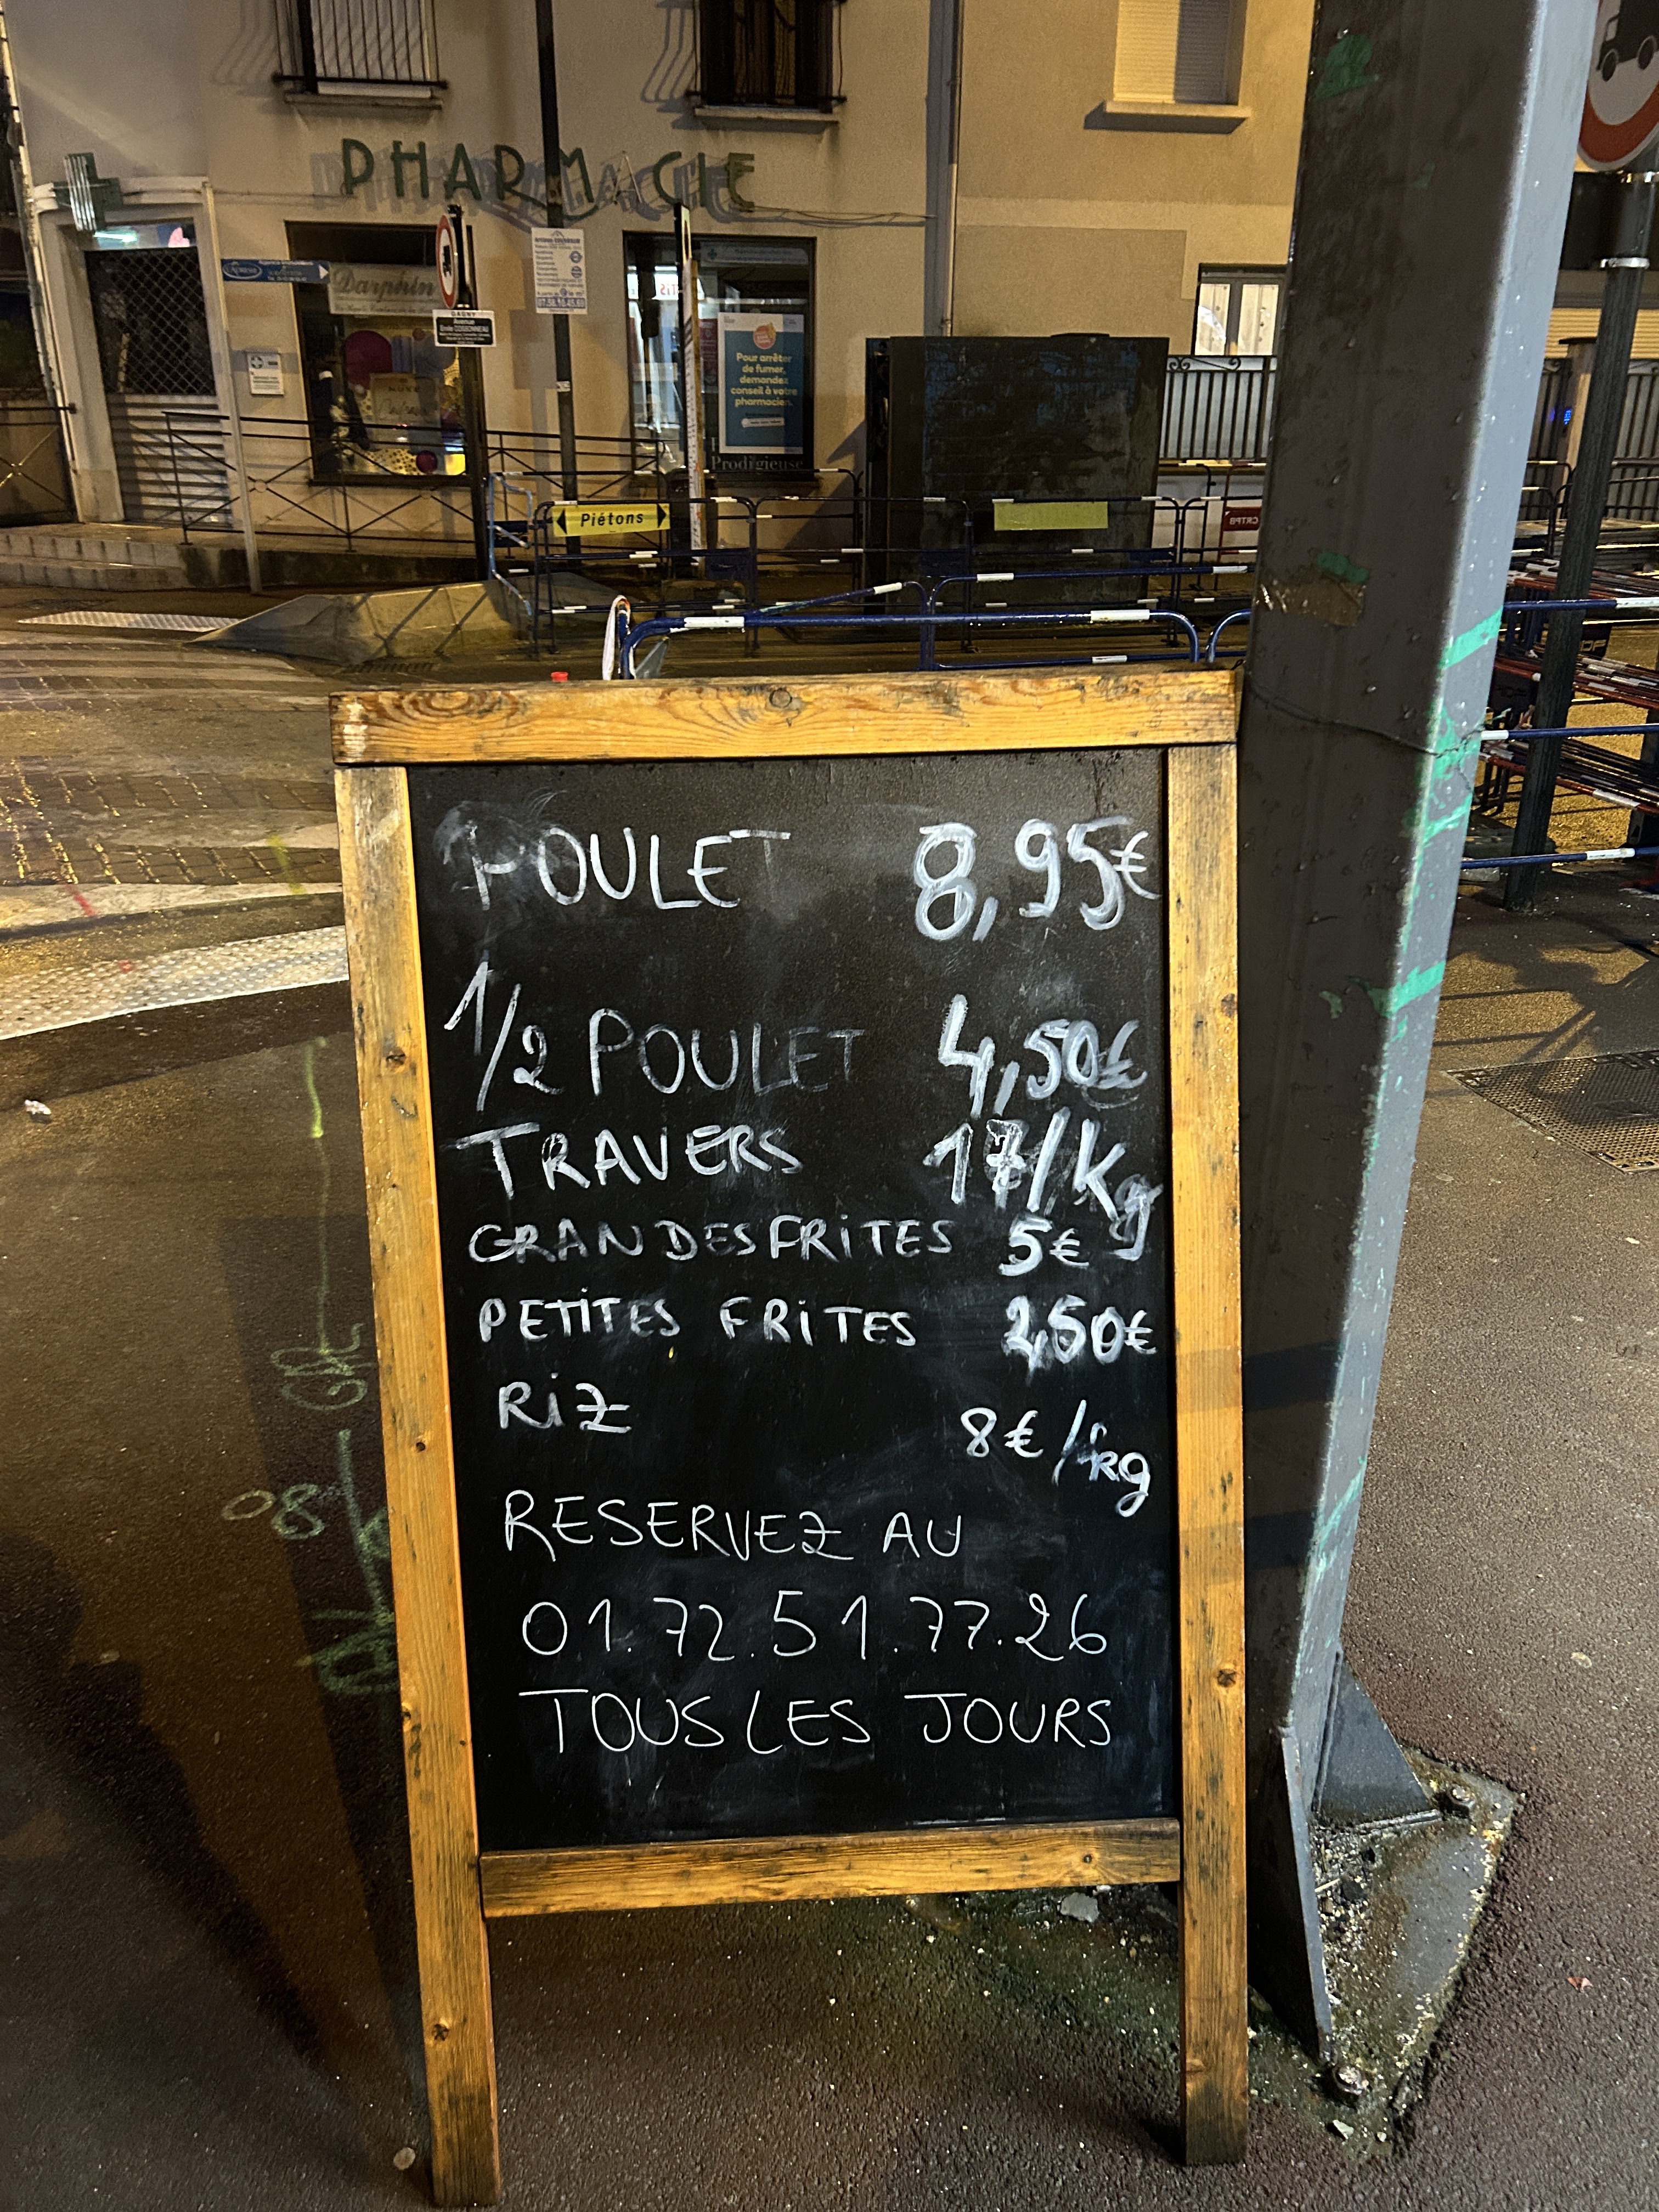 PHARMACIE
Darphin
GAGNY
Avenue
Pour arrêter
de fumer,
demandez
conseil à votre
pharmacien.
Prodigieuse
Piétons
POULET 8,95€
1/2 POULET 4,50€
TRAVERS 17/Kg
GRANDES FRITES 5€
PETITES FRITES 2,50€
RiZ 8€/kg
RESERVEZ AU
01.72.51.77.26
TOUS LES JOURS